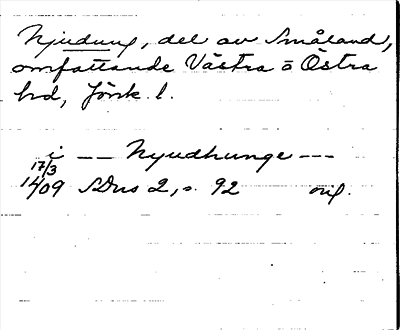 Njudung, del av Småland,
omfattande Västra o Östra
hd, Jönk. l.
i -- Nyudhunge ---
17/3
1409 SDns 2, s. 92 orig.